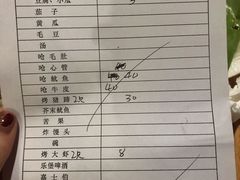 茄子
黄瓜
毛豆
汤
呛毛肚
呛心管
呛鱿鱼 40
呛牛皮 40
烤猪蹄2只 30
芥末鱿鱼
苦果
炸馒头
碗
烤大虾2只 8
乐堡啤酒
嘉士伯